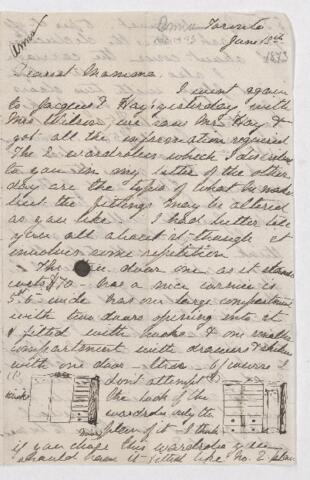 Anna
Toronto
June 13th
1873
Dearest Mamma
I went again
to Jacques & Hay's yesterday with
Mrs Wilson we saw Mr Hay &
got all the information required
The 2 wardrobes which I described
to you in my letter of the other
day are the types of what he makes
but the fittings may be altered
as you like. I had better tell
you all about it though it
involves some repetition
The door one as it stands
costs $70 - has a nice cornice is
5.6 wide has one large compartment
with two doors opening into it
& fitted with hooks & one smaller
compartment with drawers & shelves
with one door
(1)
I don't attempt
the look of the
wardrobe only the
plan of it I think
if you chose this wardrobe you
should have it fitted like No. 2 plan